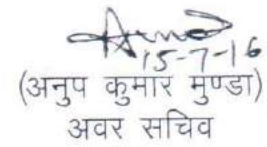 15-7-16
(अनुप कुमार मुण्डा)
अवर सचिव